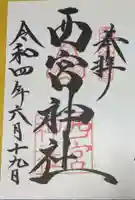 奉拝
西宮神社
令和四年六月十九日